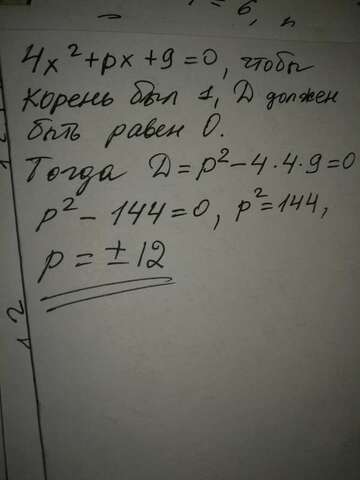 = 6,
4x²+px+9=0, чтобы
корень был 1, D должен
быть равен 0.
Тогда D=p²-4·4·9=0
p²-144=0, p²=144,
p=±12